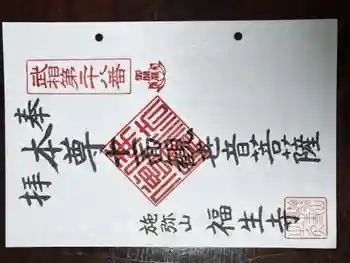 武相第二十八番
奉拝
本尊十一面観世音菩薩
施弥山
福生寺